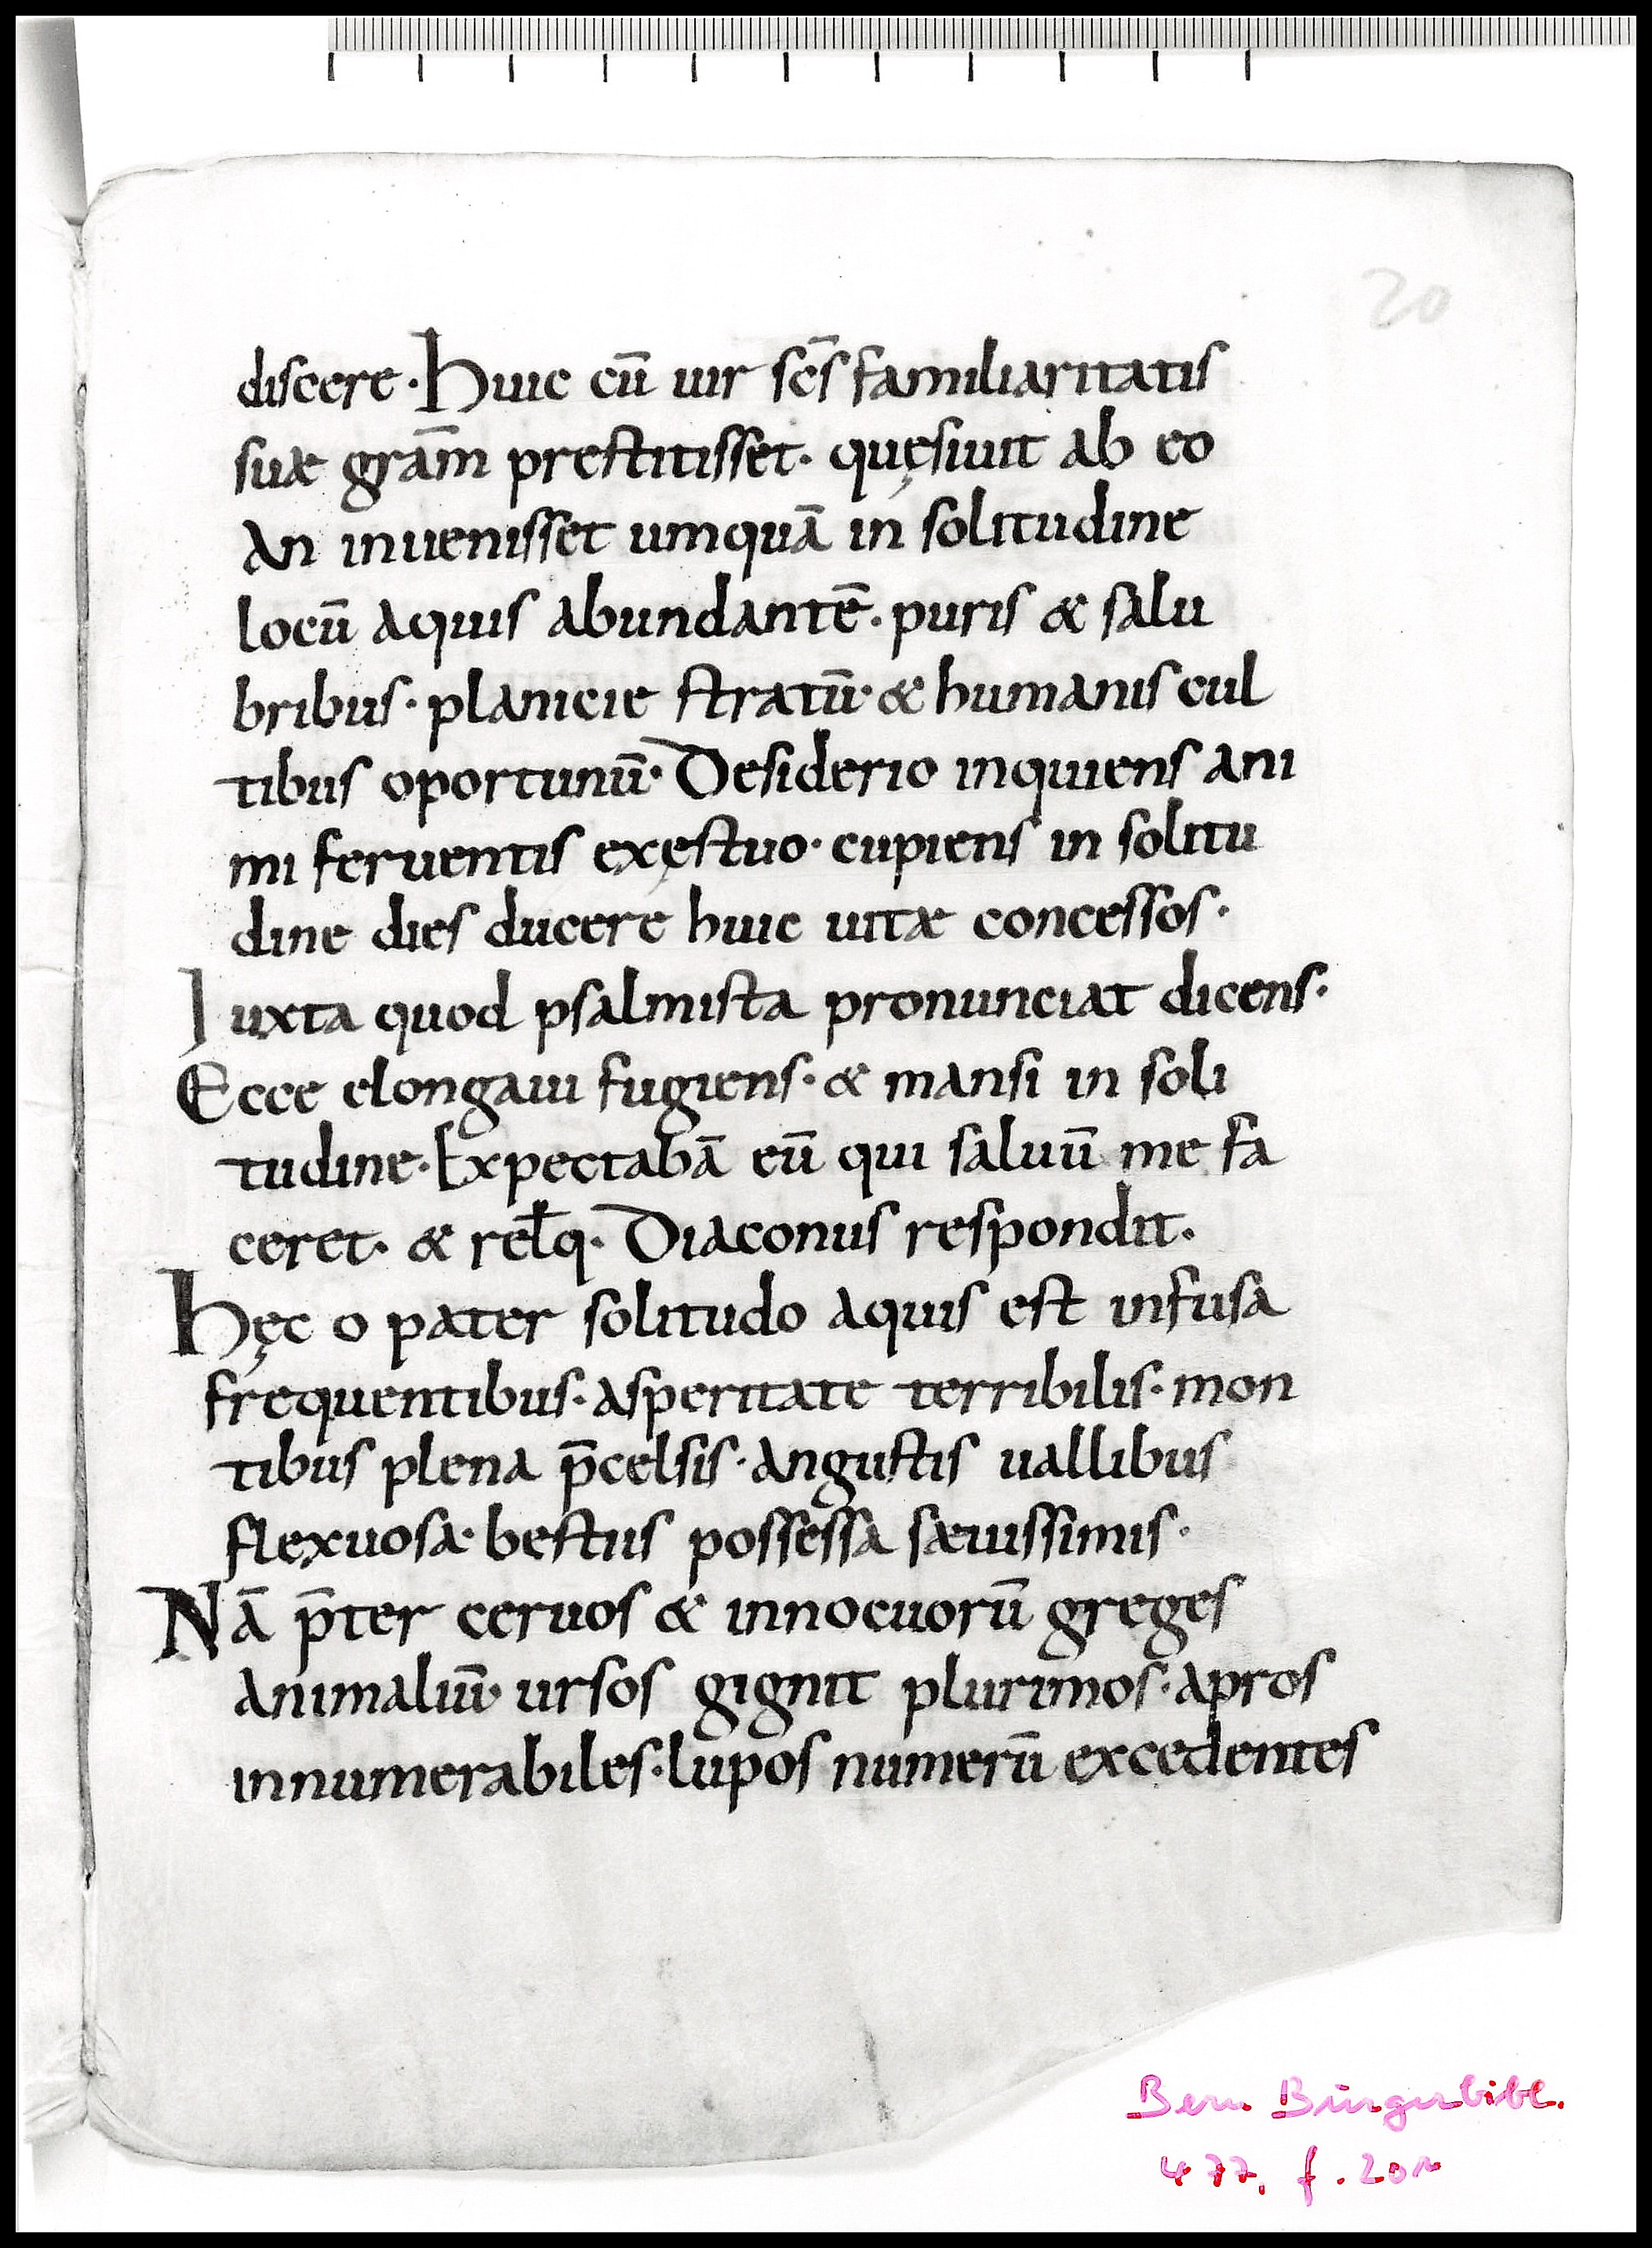 20
discere · Huic cū uir scs̄ familiaritatis
suæ gram̄ prestitisset · quęsiuit ab eo
an inuenisset umquā in solitudine
locū aquis abundantē · puris & salu
bribus · planicie stratū · & humanis cul
tibus oportunū · Desiderio inquiens ani
mi feruentis exęstuo · cupiens in solitu
dine dies ducere huic uitæ concessos ·
Iuxta quod psalmista pronunciat dicens ·
Ecce elongaui fugiens · & mansi in soli
tudine · Expectabā eū qui saluū me fa
ceret · & rel̄q · Diaconus respondit ·
Hęc o pater solitudo aquis est infusa
frequentibus · asperitate terribilis · mon
tibus plena p̄celsis · angustis uallibus
flexuosa · bestiis possessa sæuissimis ·
Nā p̄ter ceruos & innocuorū greges
animaliū · ursos gignit plurimos · apros
innumerabiles · lupos numerū excedentes
Bern Burgerbibl.
477, f. 20r